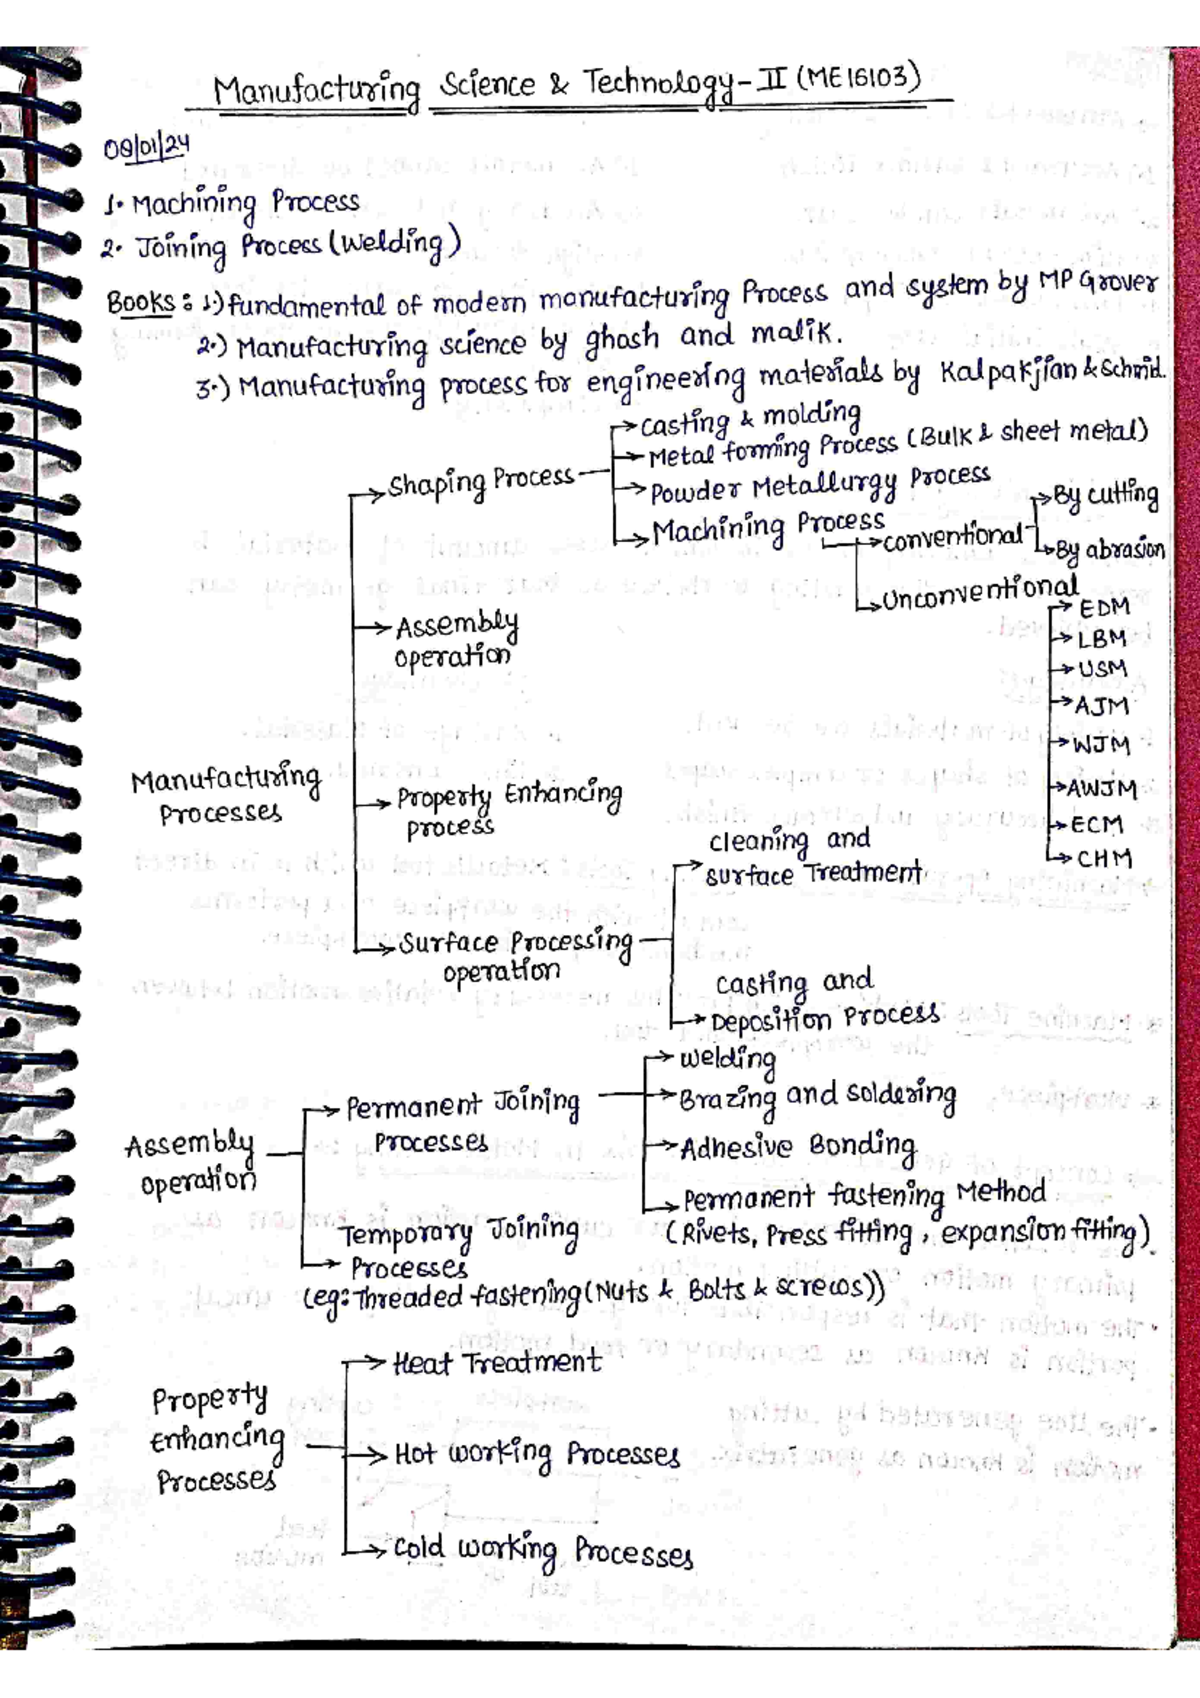 Manufacturing Science & Technology-II (ME16103)
09/01/24
1. Machining Process
2. Joining Process (Welding)
Books: 1.) fundamental of modern manufacturing Process and system by MP Grover
2.) Manufacturing science by ghosh and malik.
3.) Manufacturing process for engineering materials by Kalpakjian & Schmid.
Casting & molding
Metal forming Process (Bulk & sheet metal)
Shaping Process
Powder Metallurgy Process
Machining Process
conventional
By cutting
By abrasion
Unconventional
EDM
LBM
USM
AJM
WJM
AWJM
ECM
CHM
Assembly
operation
Manufacturing
Processes
Property Enhancing
process
cleaning and
surface Treatment
Surface Processing
operation
casting and
Deposition Process
Assembly
operation
Permanent Joining
Processes
welding
Brazing and soldering
Adhesive Bonding
Permanent fastening Method
(Rivets, Press fitting, expansion fitting).
Temporary Joining
Processes
(eg: Threaded fastening (Nuts & Bolts & screws))
Property
Enhancing
Processes
Heat Treatment
Hot working Processes
Cold working Processes